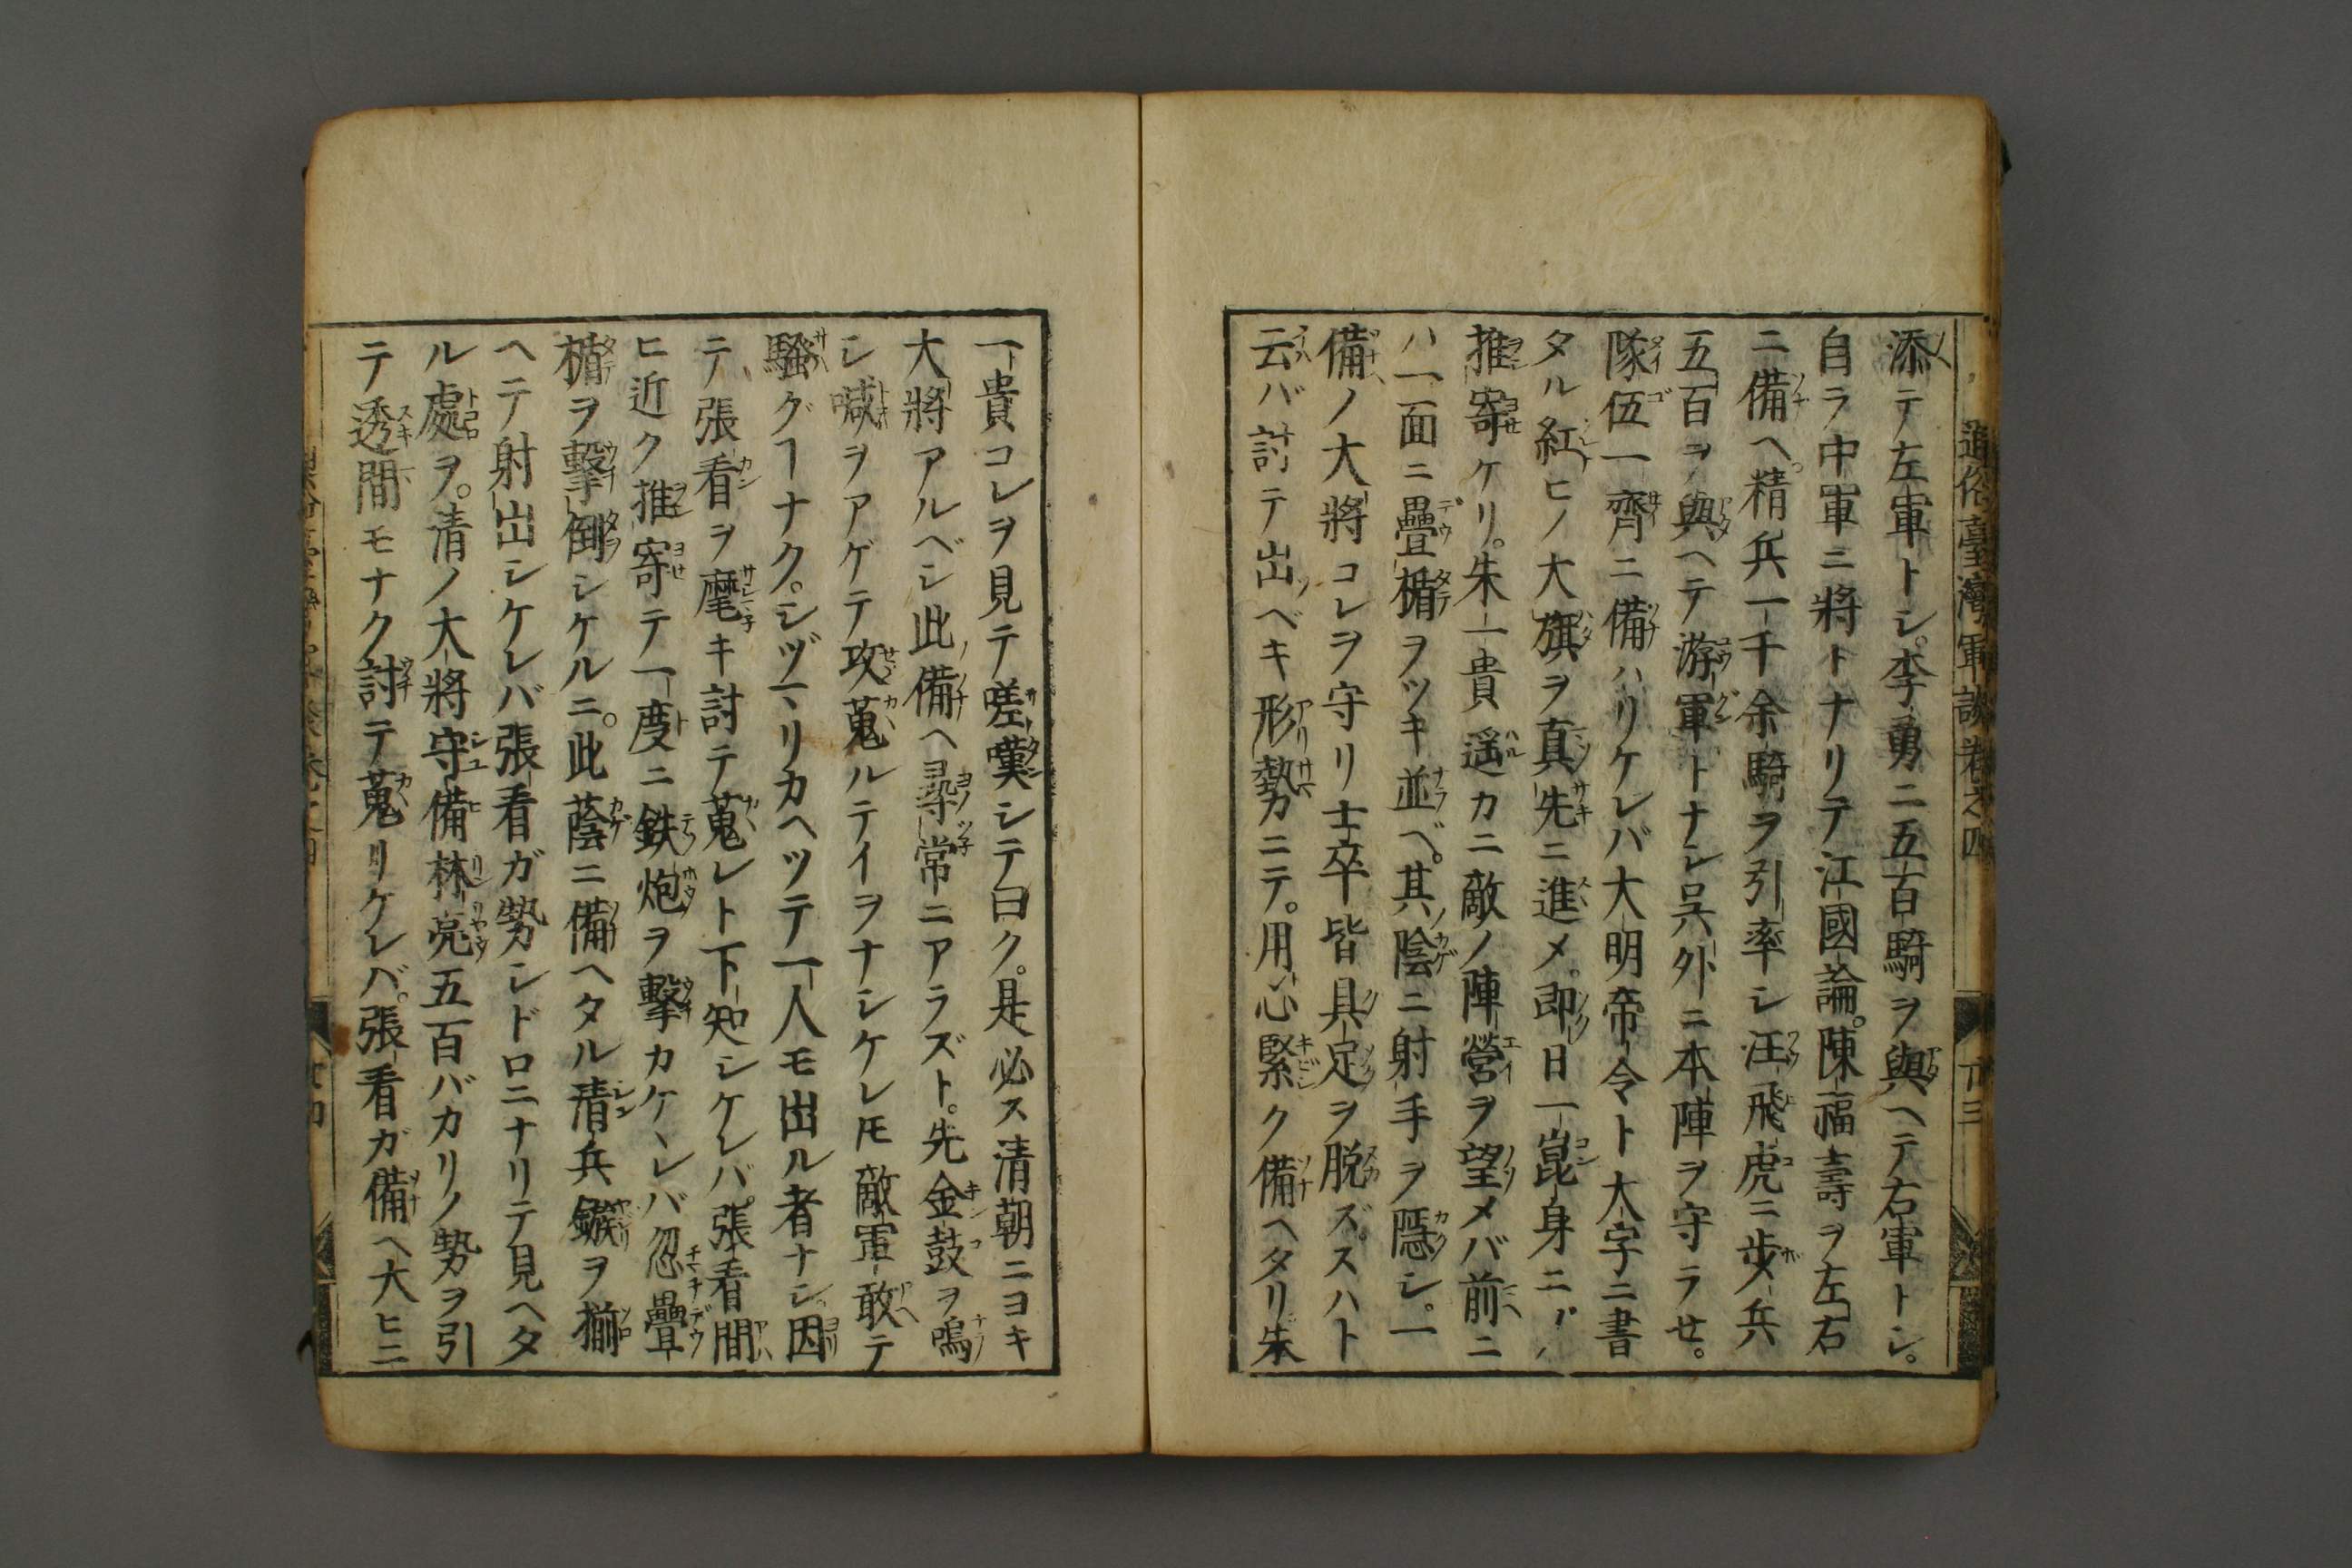 通俗臺灣軍談卷之四
廿三
添テ左軍トシ。李勇ニ五百騎ヲ與ヘテ右軍トシ。
自ラ中軍ニ將トナリテ江國論。陳福壽ヲ左右
ニ備ヘ。精兵一千余騎ヲ引率シ汪飛虎ニ歩兵
五百ヲ與ヘテ游軍トナシ呉外ニ本陣ヲ守ラセ。
隊伍一齊ニ備ハリケレバ大明帝令ト大字ニ書
タル紅ヒノ大旗ヲ真先ニ進メ。即日一崑身ニ
推寄ケリ。朱一貴遥カニ敵ノ陣營ヲ望メバ前ニ
ハ一面ニ疊楯ヲツキ並ベ。其陰ニ射手ヲ隱シ。一
備ノ大將コレヲ守リ士卒皆具足ヲ脱ズ。スハト
云バ討テ出ベキ形勢カニテ。用心緊ク備ヘタリ朱
一貴コレヲ見テ嗟嘆シテ曰ク。是必ス清朝ニヨキ
大將アルベシ此備ヘ尋常ニアラズト。先金鼓ヲ鳴
シ喊ヲアゲテ攻蒐ルテイヲナシケレ𪜈敵軍敢テ
騒グヿナク。シヅマリカヘツテ一人モ出ル者ナシ因
テ張看ヲ麾キ討テ蒐レト下知シケレバ。張看間
ヒ近ク推寄テ一度ニ鉄炮ヲ撃カケヽレバ忽疊
楯ヲ撃倒シケルニ。此蔭ニ備ヘタル清兵鏃ヲ揃
ヘテ射出シケレバ張看ガ勢シドロニナリテ見ヘタ
ル處ヲ。清ノ大將守備林亮五百バカリノ勢ヲ引
テ透間モナク討テ蒐リケレバ。張看ガ備ヘ大ヒニ